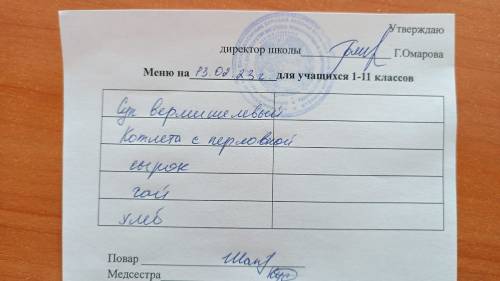 Утверждаю
директор школы Г.Омарова
Меню на 13.02.23г. для учащихся 1-11 классов
Суп вермишелевый
Котлета с перловкой
сырок
чай
хлеб
Повар
Медсестра